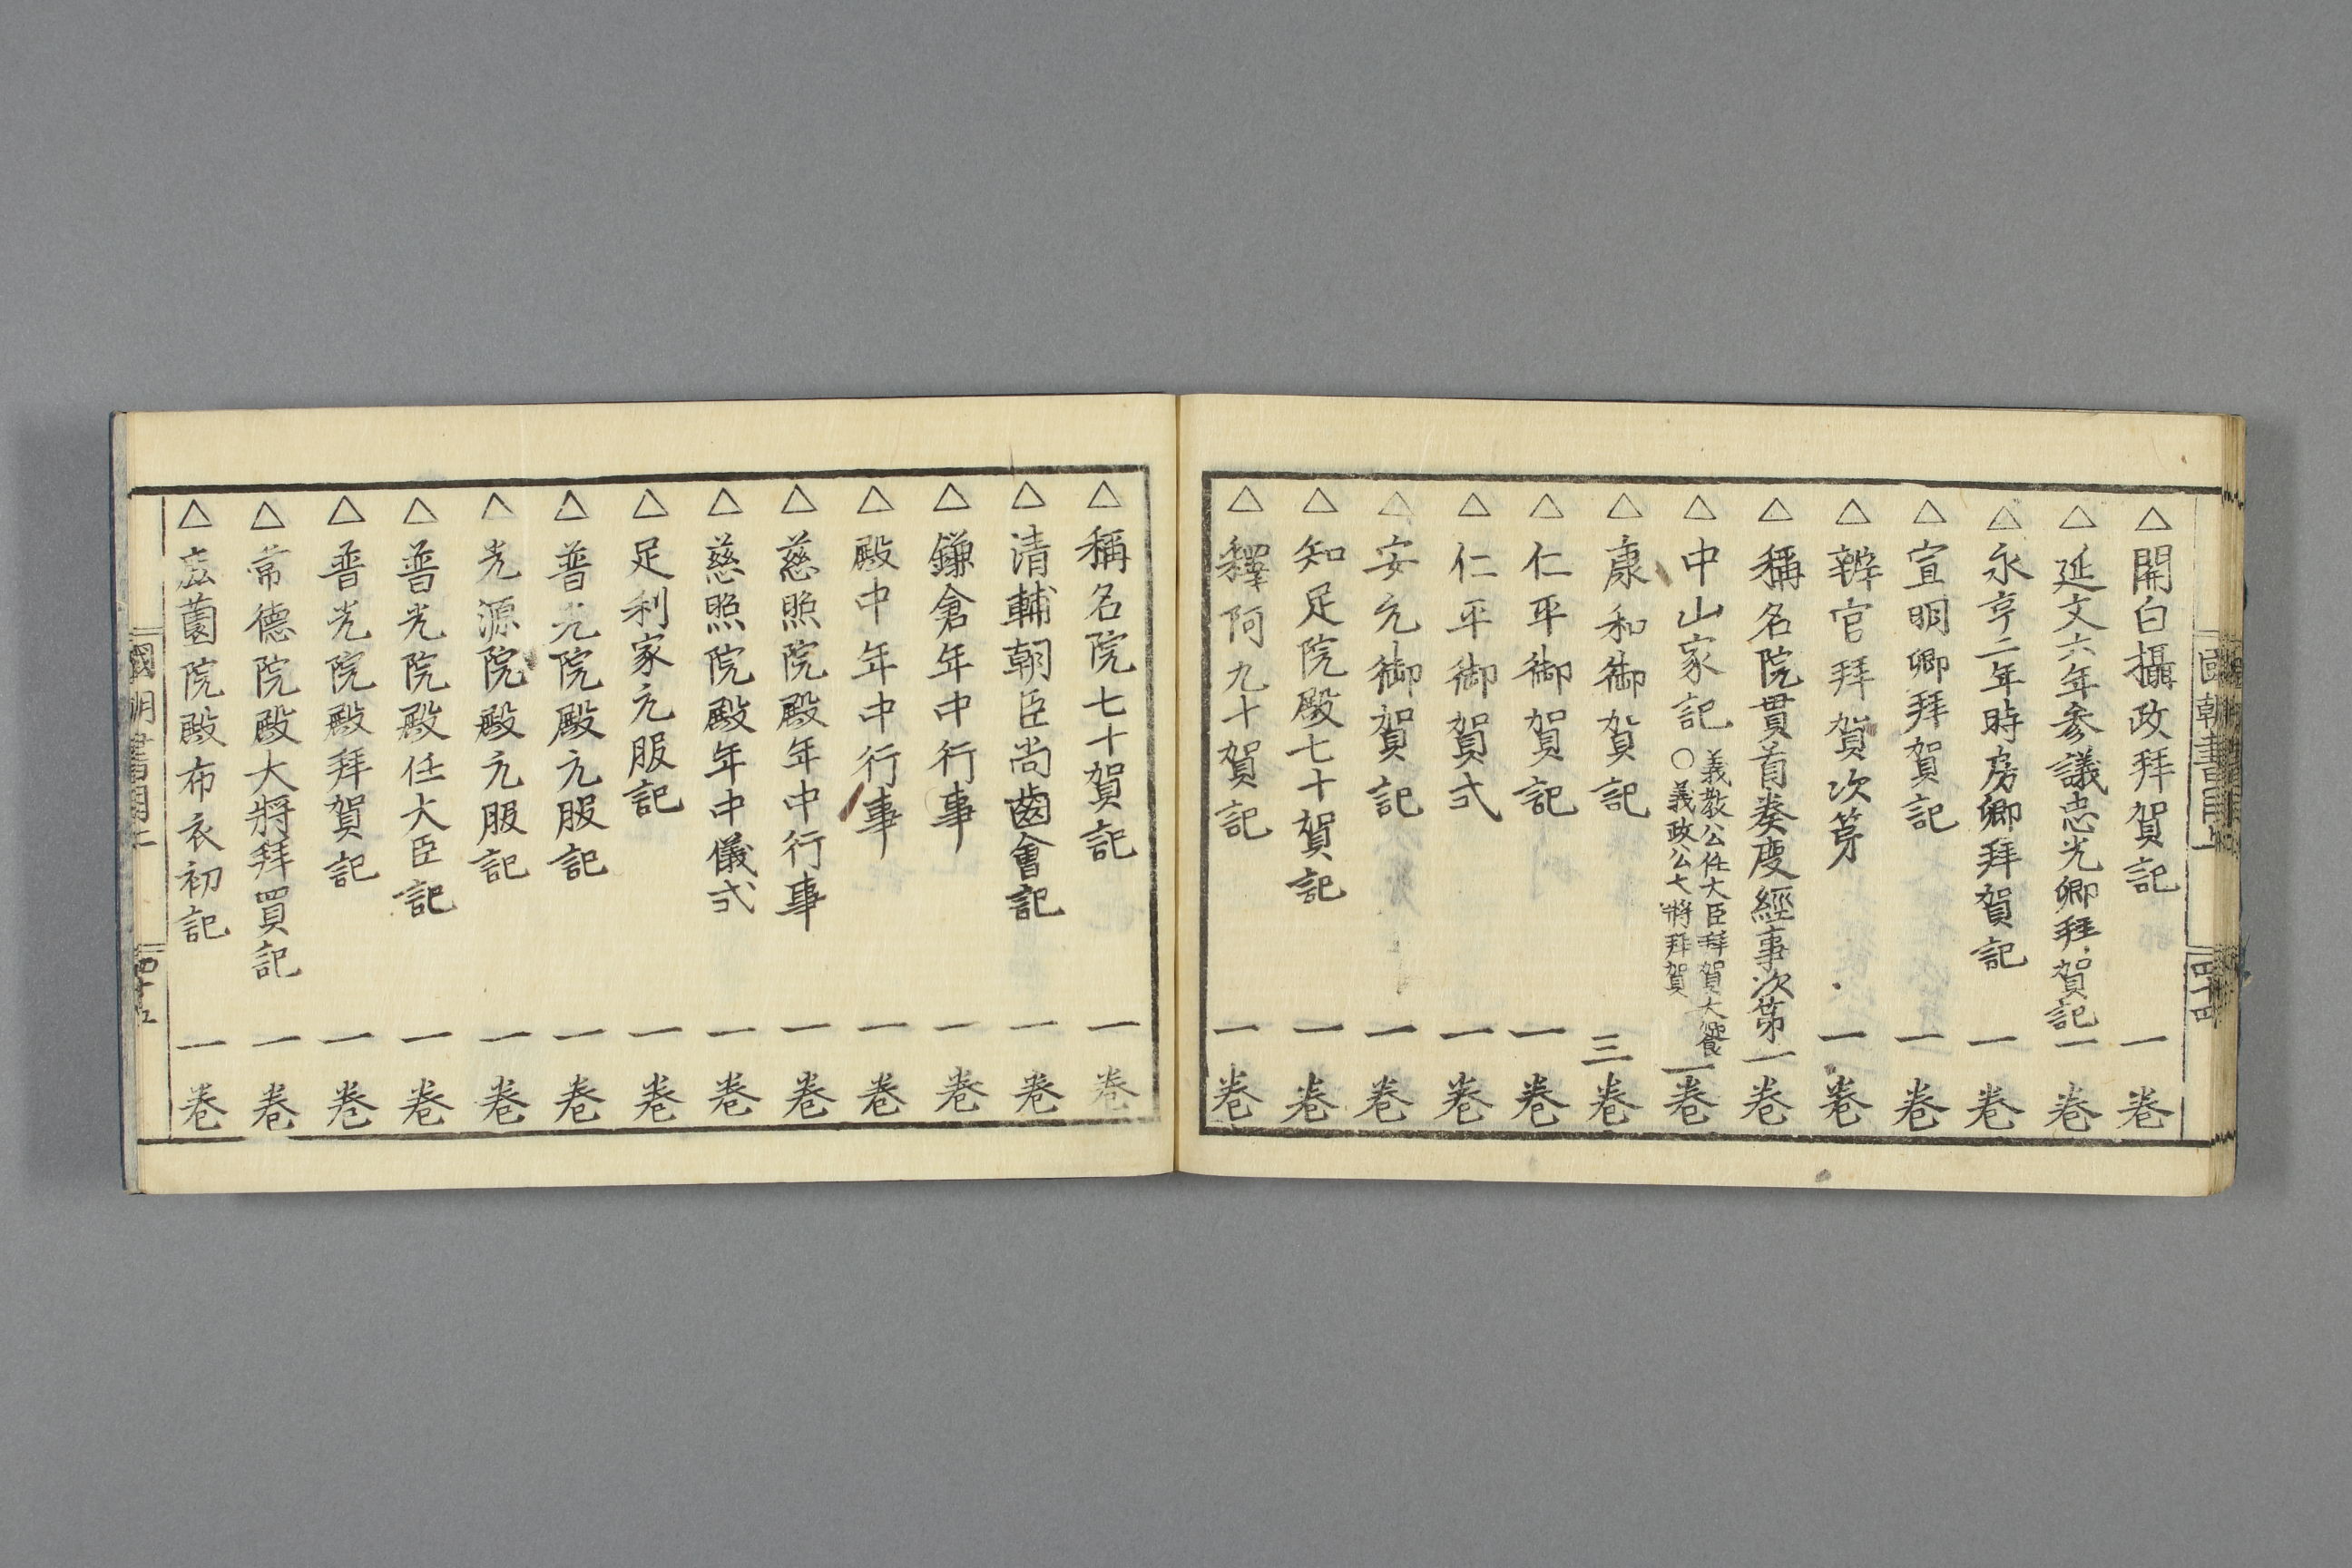 國朝書目上
四十四
△開白攝政拜賀記 一巻
△延文六年参議忠光卿拜賀記 一巻
△永亨二年時房卿拜賀記 一巻
△宣明卿拜賀記 一巻
△辨官拜賀次第 一巻
△稱名院貫首奏慶經事次第 一巻
△中山家記 義教公任大臣拜賀大饗 一巻
○義政公大將拜賀
△康和御賀記 三巻
△仁平御賀記 一巻
△仁平御賀式 一巻
△安元御賀記 一巻
△知足院殿七十賀記 一巻
△釋阿九十賀記 一巻
△稱名院七十賀記 一巻
△清輔朝臣尚齒會記 一巻
△鎌倉年中行事 一巻
△殿中年中行事 一巻
△慈照院殿年中行事 一巻
△慈照院殿年中儀式 一巻
△足利家元服記 一巻
△普光院殿元服記 一巻
△光源院殿元服記 一巻
△普光院殿任大臣記 一巻
△普光院殿拜賀記 一巻
△常德院殿大將拜買記 一巻
△院殿布衣初記 一巻
國朝書目上
四十五